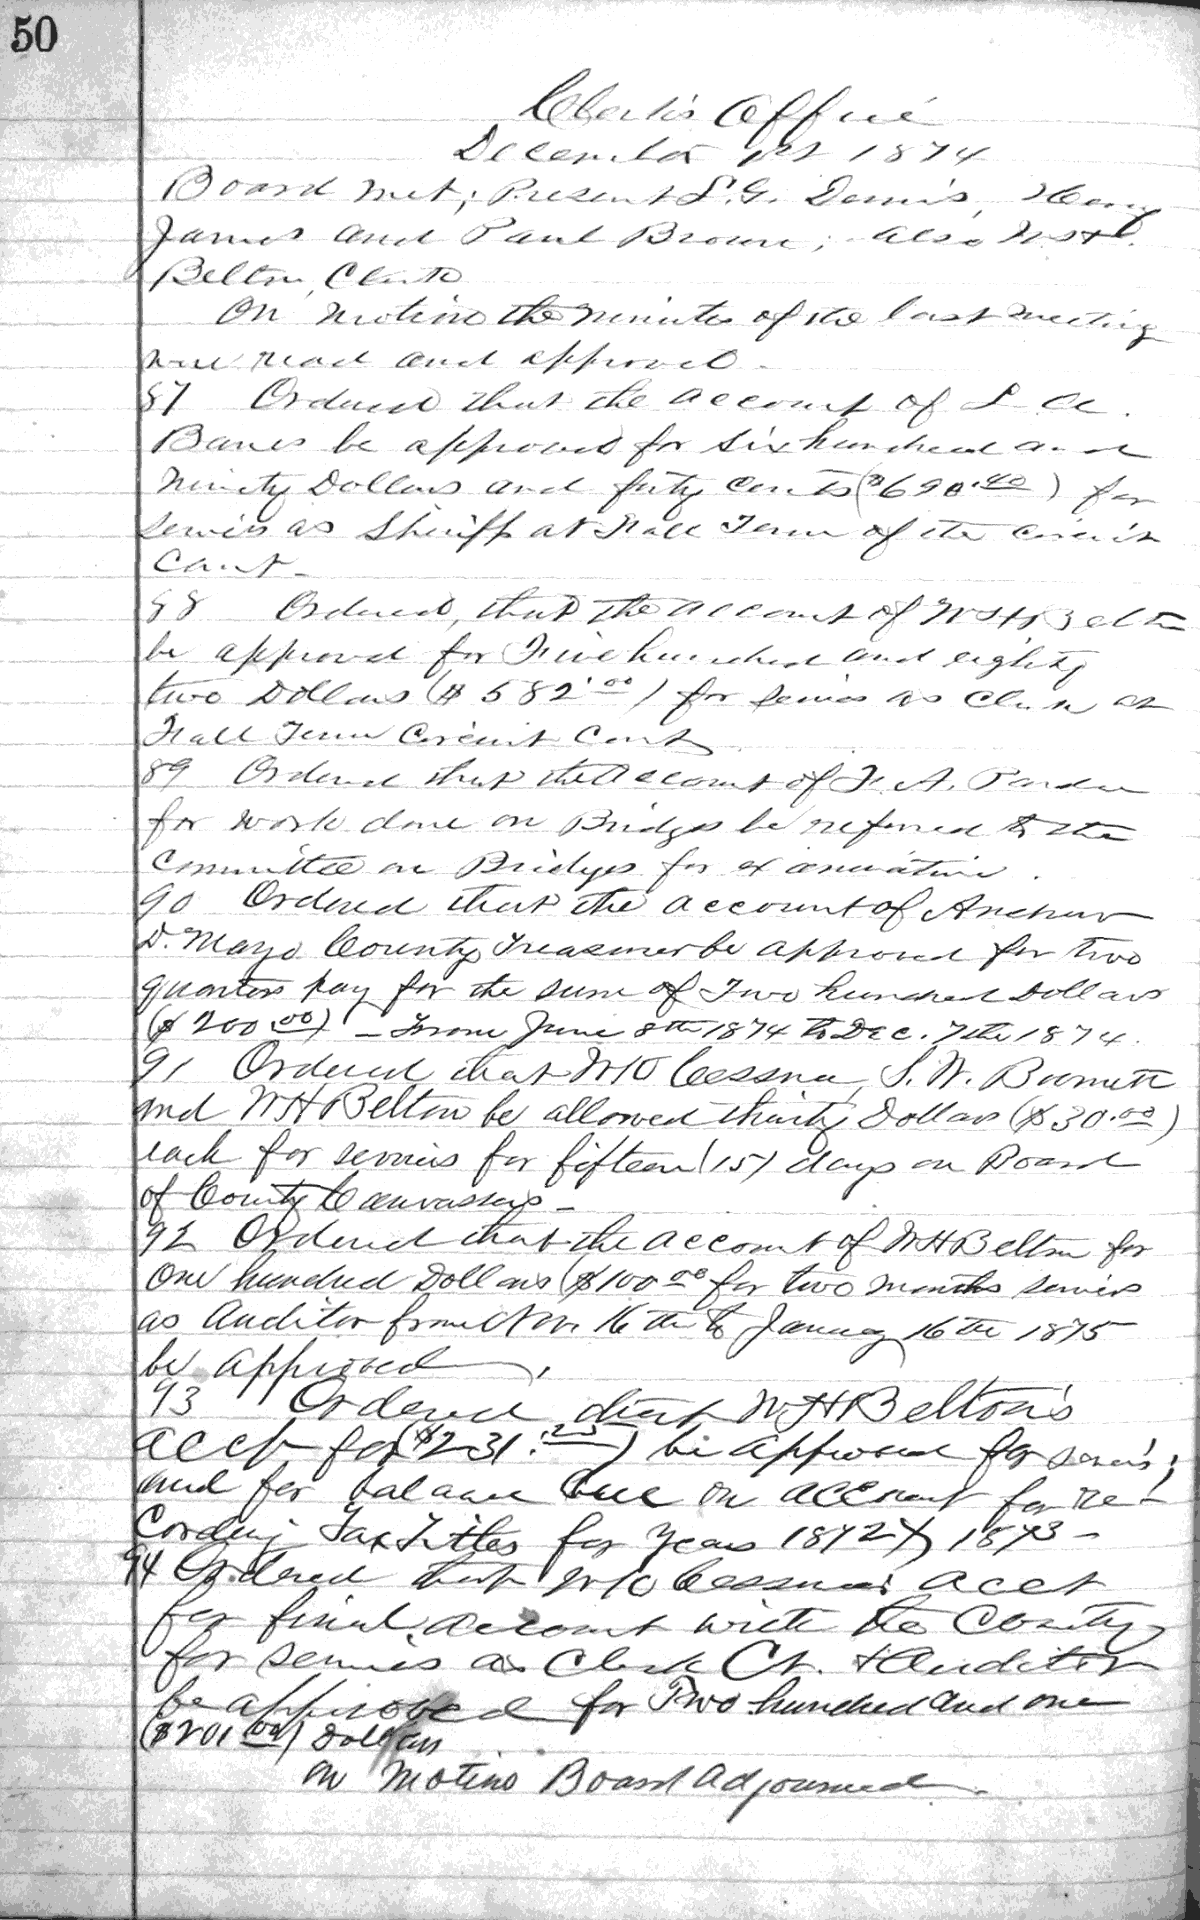 50
Clerk's Office
December 1st 1874
Board met; Present L. G. Dennis, Henry
James and Paul Brown; also W. H.
Belton, Clerk
On motion the minutes of the last meeting
were read and approved.
87 Ordered that the account of L A.
Barnes be approved for six hundred and
ninety Dollars and forty cents ($690.40) for
services as Sheriff at Fall Term of the circuit
Court -
88 Ordered, that the account of W H Belton
be approved for Five hundred and eighty
two Dollars ($582.00) for services as Clerk at
Fall Term Circuit Court
89 Ordered that the account of F. A. Pardee
for work done on Bridges be referred to the
Committee on Bridges for examination.
90 Ordered that the account of Andrew
D. Mayo County Treasurer be approved for two
quarters pay for the sum of Two hundred Dollars
($200.00) - From June 8th 1874 to Dec. 7th 1874.
91 Ordered that W K Cessna, S. W. Burnett
and W H Belton be allowed thirty Dollars ($30.00)
each for services for fifteen (15) days on Board
of County Canvassers -
92 Ordered that the account of W H Belton for
One hundred Dollars ($100.00 for two months services
as Auditor from Nov 16th to January 16th 1875
be approved.
93 Ordered that W H Belton's
acct for ($231.25) be approved for servis;
and for balance due on account for re-
cording Tax Titles for Years 1872 & 1873 -
94 Ordered that W K Cessna's acct
for final account with the County
for services as Clerk Ct. & Auditor
be approved for Two hundred and one
($201.00) Dollars
On Motino Board Adjourned.